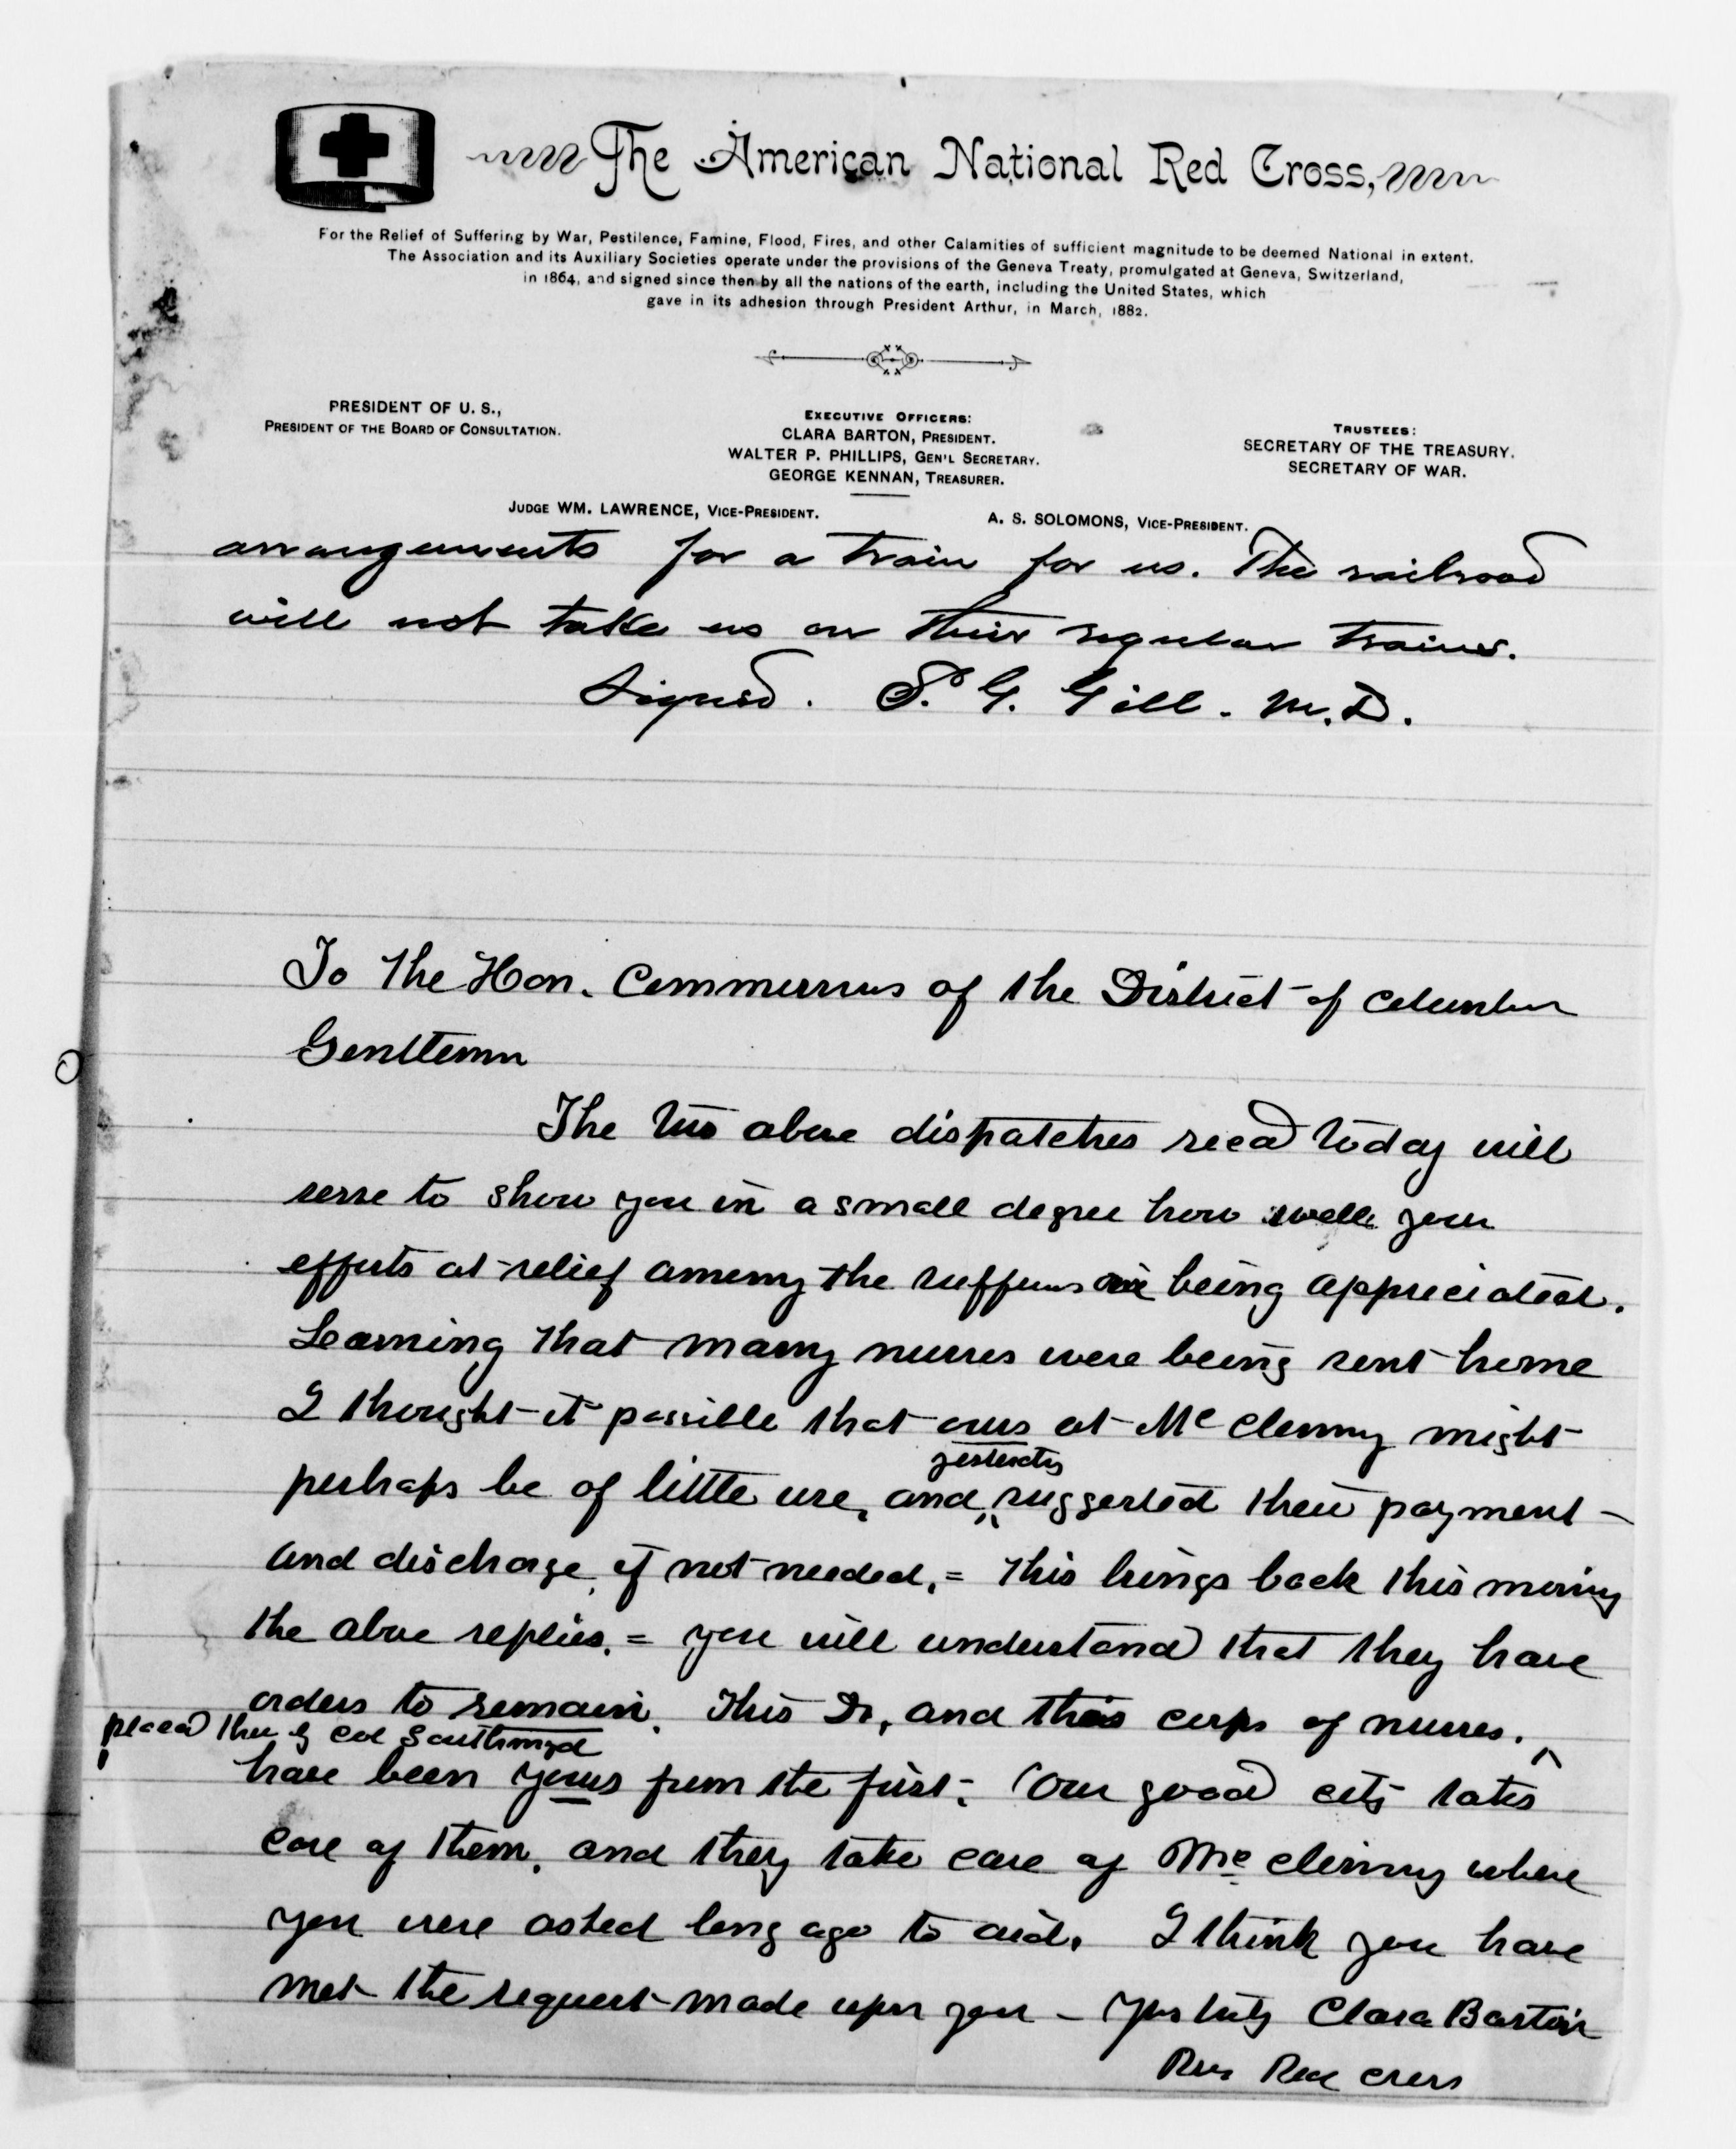 The American National Red Cross,
For the Relief of Suffering by War, Pestilence, Famine, Flood, Fires, and other Calamities of sufficient magnitude to be deemed National in extent.
The Association and its Auxiliary Societies operate under the provisions of the Geneva Treaty, promulgated at Geneva, Switzerland,
in 1864, and signed since then by all the nations of the earth, including the United States, which
gave in its adhesion through President Arthur, in March, 1882.
PRESIDENT OF U. S.,
PRESIDENT OF THE BOARD OF CONSULTATION.
EXECUTIVE OFFICERS:
CLARA BARTON, PRESIDENT.
WALTER P. PHILLIPS, GEN'L SECRETARY.
GEORGE KENNAN, TREASURER.
TRUSTEES:
SECRETARY OF THE TREASURY.
SECRETARY OF WAR.
JUDGE WM. LAWRENCE, VICE-PRESIDENT.
A. S. SOLOMONS, VICE-PRESIDENT.
arrangements for a train for us. The railroad
will not take us on their regular trains.
Signed. S. G. Gill. M.D.
To the Hon. Commissrus of the District of Columbia
Gentlemen
The two above dispatches recd today will
serve to show you in a small degree how well your
efforts at relief among the sufferers are being appreciated.
Learning that many nurses were being sent home
I thought it possible that ours at McClenny might
yesterday
perhaps be of little use, and suggested their payment
and discharge if not needed, = this brings back this morning
the above replies. = you will understand that they have
orders to remain. This Dr, and this corps of nurses.
placed there by Col Southmayd
have been yours from the first. Our good city takes
care of them, and they take care of McClenny where
you were asked long ago to aid. I think you have
met the request made upon you - Yrs truly Clara Barton
Pres Red Cross